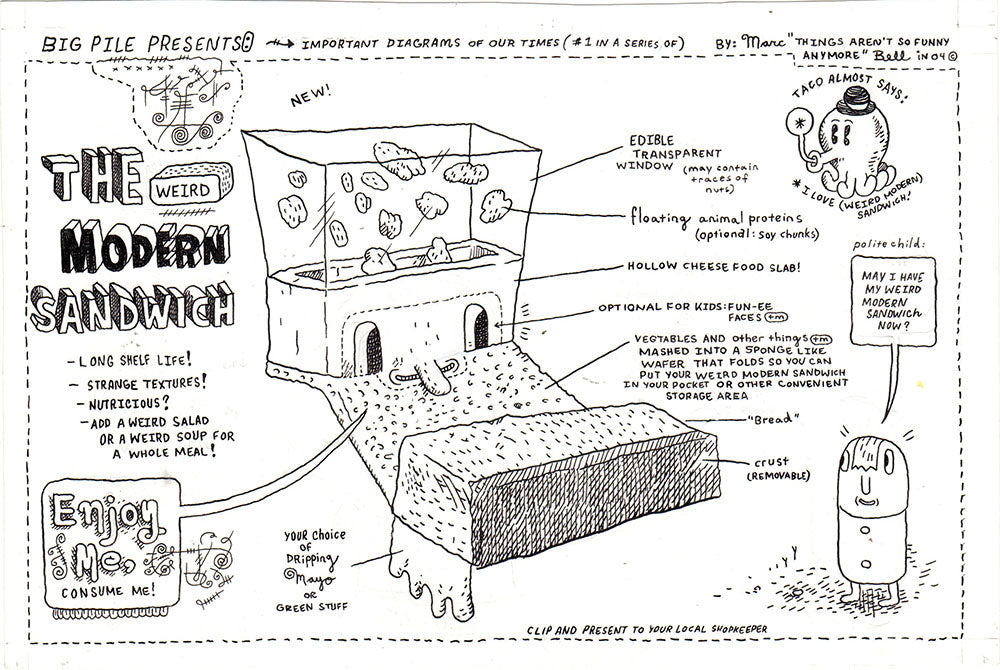 BIG PILE PRESENTS: IMPORTANT DIAGRAMS OF OUR TIMES (#1 IN A SERIES OF)
BY: Marc "THINGS AREN'T SO FUNNY
ANYMORE" Bell IN 04 ©
NEW!
THE
WEIRD
MODERN
SANDWICH
- LONG SHELF LIFE!
- STRANGE TEXTURES!
- NUTRICIOUS?
- ADD A WEIRD SALAD
OR A WEIRD SOUP FOR
A WHOLE MEAL!
Enjoy
Me,
CONSUME ME!
EDIBLE
TRANSPARENT
WINDOW (may contain
traces of
nuts)
floating animal proteins
(optional: soy chunks)
HOLLOW CHEESE FOOD SLAB!
OPTIONAL FOR KIDS: FUN-EE
FACES tm
VEGTABLES AND other things tm
MASHED INTO A SPONGE LIKE
WAFER THAT FOLDS SO YOU CAN
PUT YOUR WEIRD MODERN SANDWICH
IN YOUR POCKET OR OTHER CONVENIENT
STORAGE AREA
"Bread"
crust
(REMOVABLE)
YOUR CHOICE
OF
DRIPPING
Mayo
OR
GREEN STUFF
TACO ALMOST SAYS:
*
* I LOVE (WEIRD MODERN)
SANDWICH!
polite child:
MAY I HAVE
MY WEIRD
MODERN
SANDWICH
NOW?
CLIP AND PRESENT TO YOUR LOCAL SHOPKEEPER